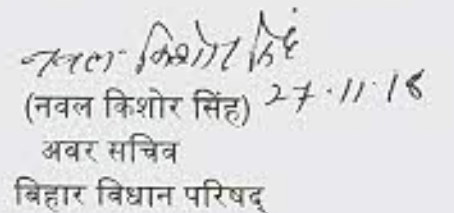 नवल किशोर सिंह
(नवल किशोर सिंह) 27.11.18
अवर सचिव
बिहार विधान परिषद्